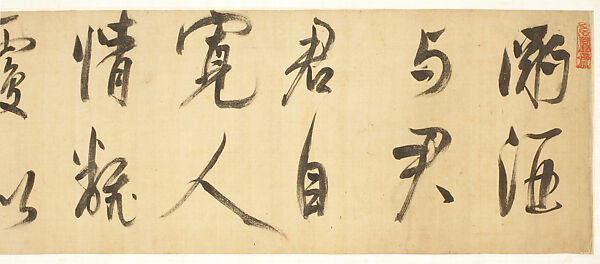 酌酒
与君
君自
寬人
情翻
覆似